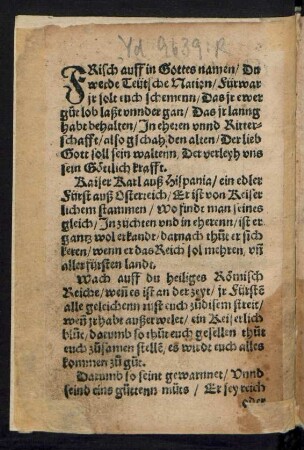 Yd 9639:R
FRisch auff in Gottes namen/ Du
werde Teütsche Nation/ Fürwar
jr solt euch schemenn/ Das jr ewer
güt lob laßt vnnder gan/ Das jr lanng
habt behalten/ In eheren vnnd Ritter-
schafft/ also gschah den alten/ Der lieb
Gott soll sein waltenn/ Der verleyh vns
sein Göttlich krafft.
Kaiser Karl auß Hispania/ ein edler
Fürst auß Osterreich/ Er ist von Keiser
lichem stammen/ Wo findt man seines
gleich/ In züchten vnd in eherenn/ ist er
gantz wol erkandt/ darnach thüt er sich
keren/ wenn er das Reich sol mehren/ vñ
aller fürsten landt.
Wach auff du heiliges Römisch
Reiche/ weñ es ist an der zeyt/ jr Fürstẽ
alle geleichenn rüst euch zü disem streit/
weñ jr habt außerwelet/ ein Keiserlich
blüt/ darumb so thüt euch gesellen thüt
euch züsamen stellẽ/ es wirdt euch alles
kommen zü güt.
Darumb so seint gewarnnet/ Vnnd
seind eins güttenn müts/ Er sey reich
oder